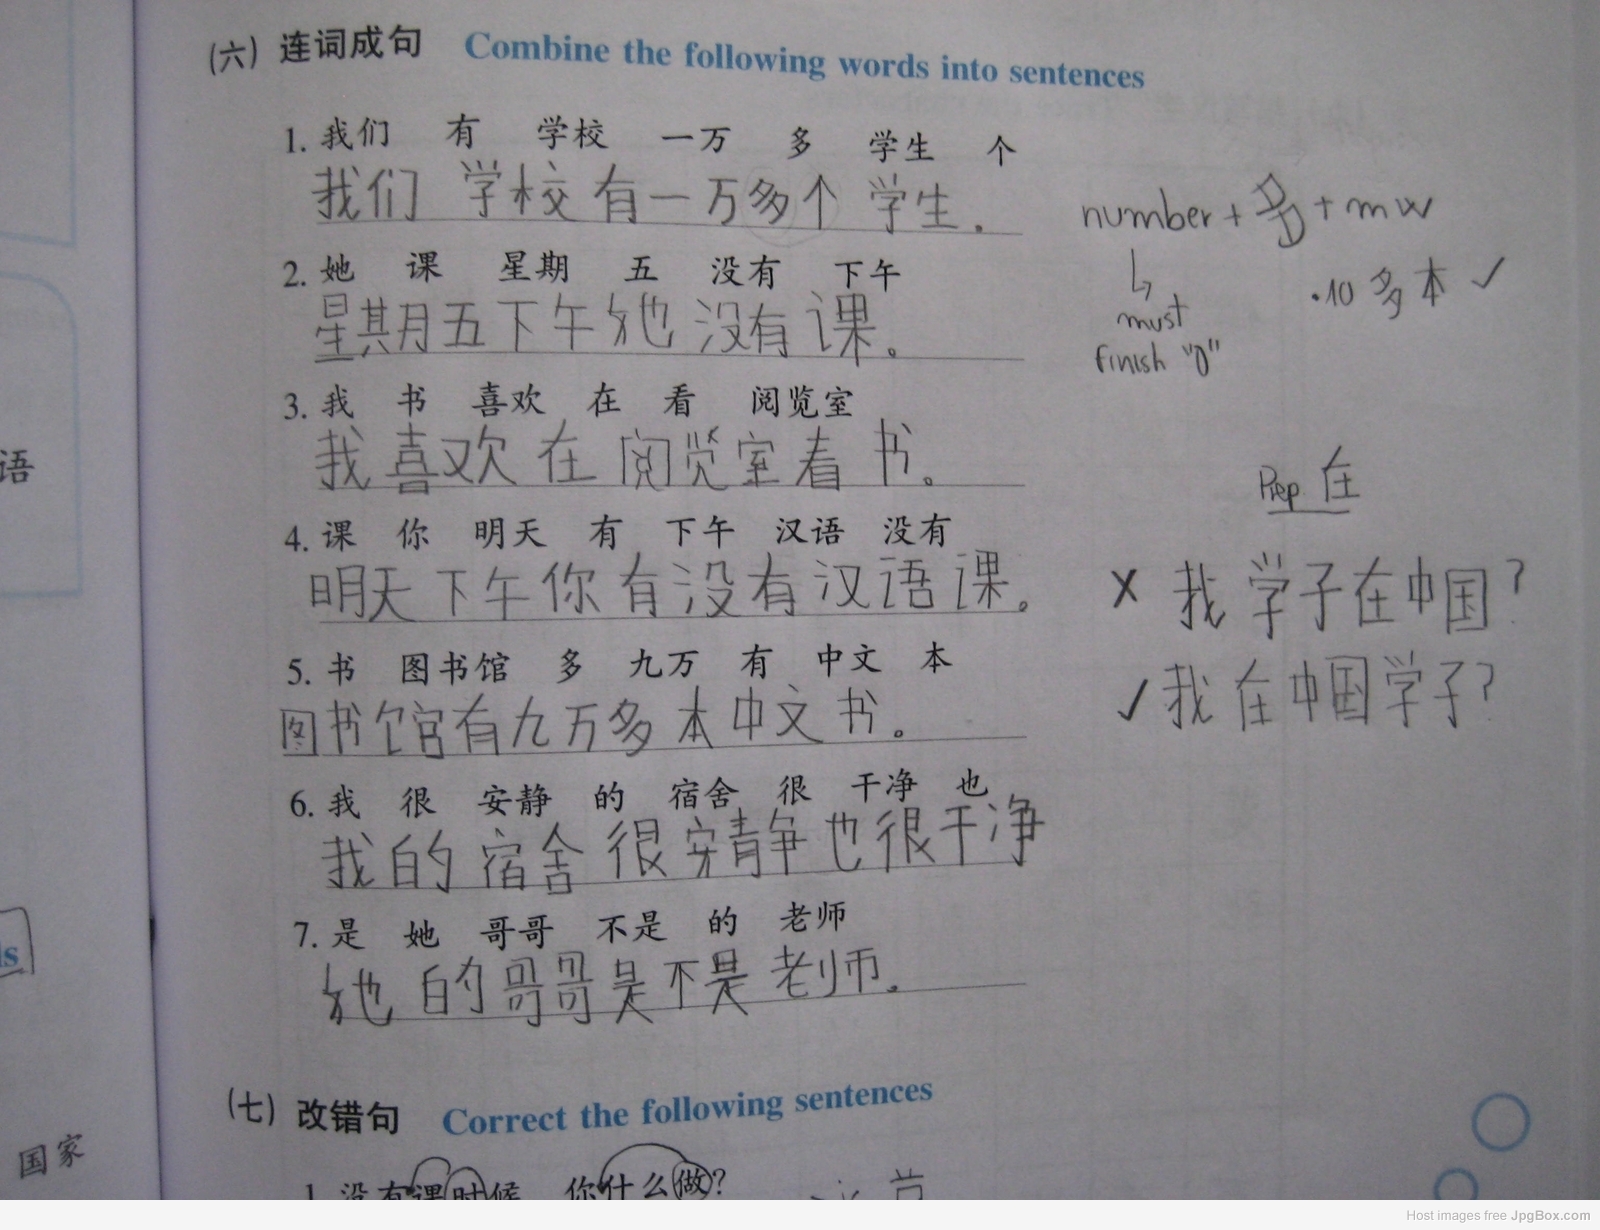 (六) 连词成句 Combine the following words into sentences
1. 我们 有 学校 一万 多 学生 个
我们 学校 有一万多个 学生.
number + 多 + mw
2. 她 课 星期 五 没有 下午
星期五下午她没有课。
must
finish "0"
·10 多本 ✓
3. 我 书 喜欢 在 看 阅览室
我喜欢在阅览室看书。
语
Prep 在
4. 课 你 明天 有 下午 汉语 没有
明天下午你有没有汉语课。
X 我学子在中国?
5. 书 图书馆 多 九万 有 中文 本
图书馆有九万多本中文书。
✓ 我在中国学子?
6. 我 很 安静 的 宿舍 很 干净 也
我的宿舍很安静也很干净
7. 是 她 哥哥 不是 的 老师
她的哥哥是不是老师.
ls
(七) 改错句 Correct the following sentences
国家
1. 没有课时候 你什么做?
Host images free JpgBox.com